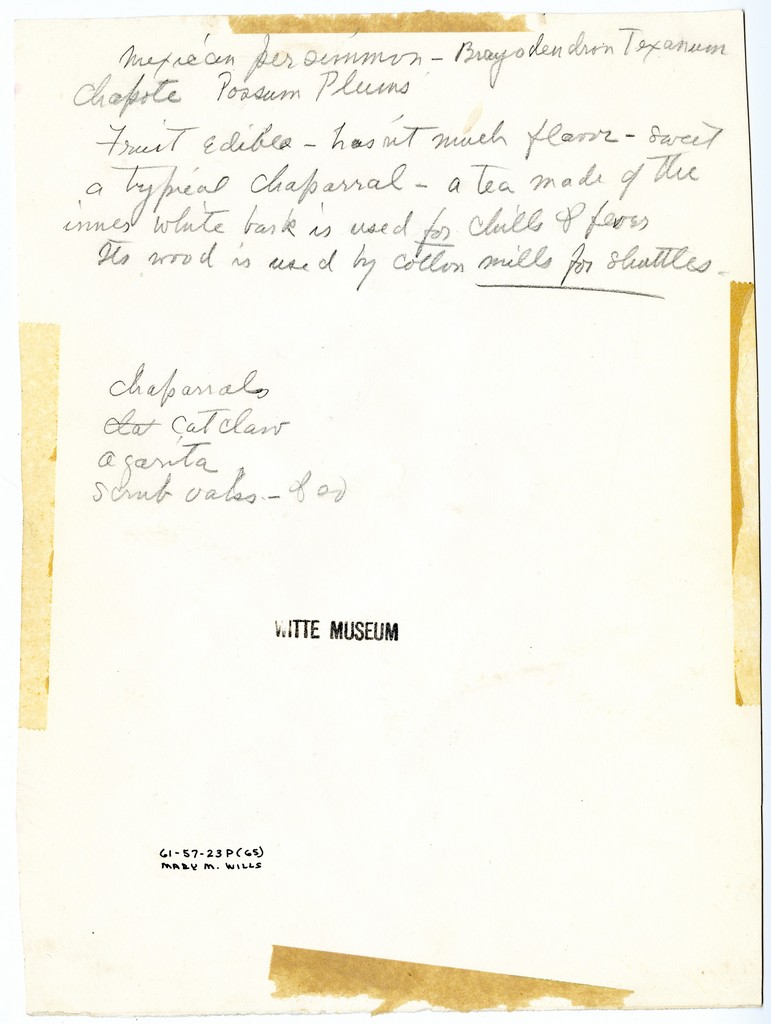 Mexican persimmon - Brayodendron Texanum
Chapote Possum Plums
Fruit edible - hasn't much flavor - sweet
a typical chaparral - a tea made of the
inner white bark is used for chills & fever
Its wood is used by cotton mills for shuttles -
Chaparrals
Cat claw
agarita
scrub oaks -
WITTE MUSEUM
61-57-23P(65)
MARY M. WILLS